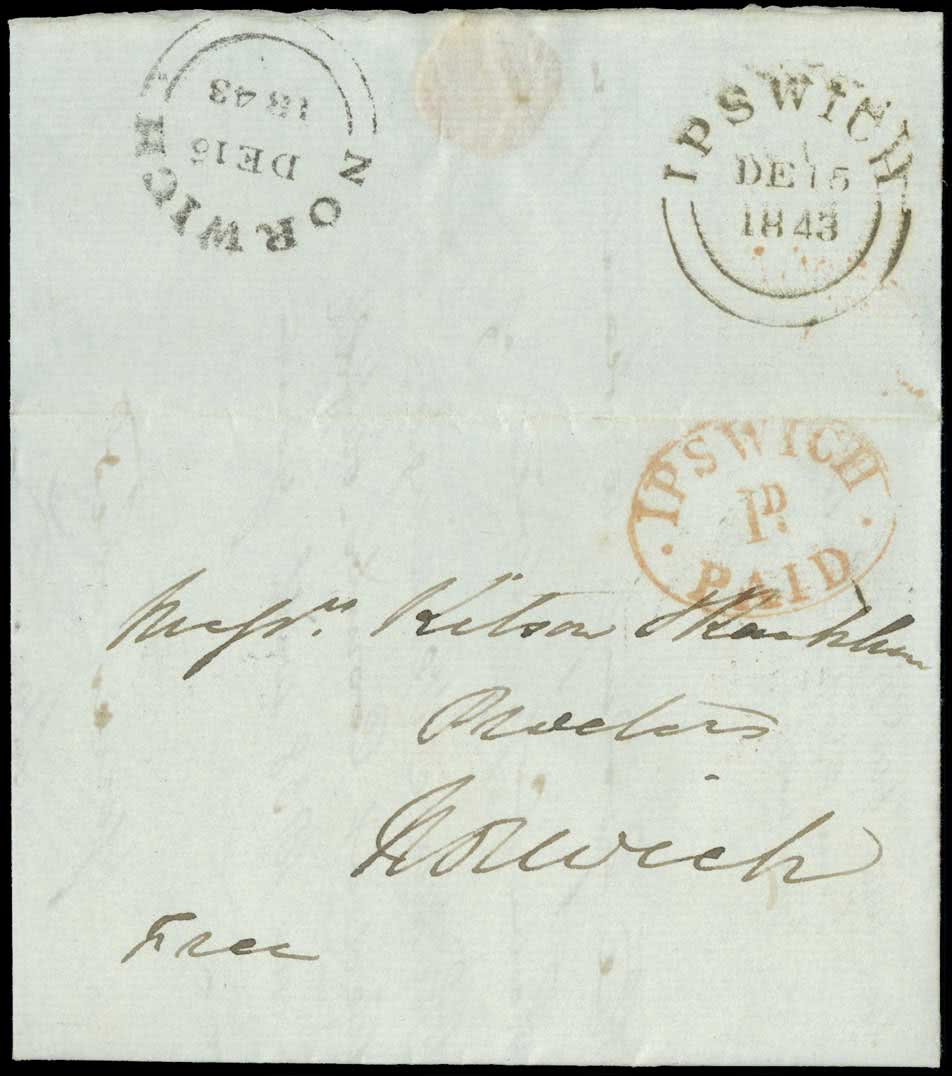 NORWICH
DE 16
1843
IPSWICH
DE 15
1843
IPSWICH
PD
PAID
Messrs. Kitson &
Proctors
Norwich
Free